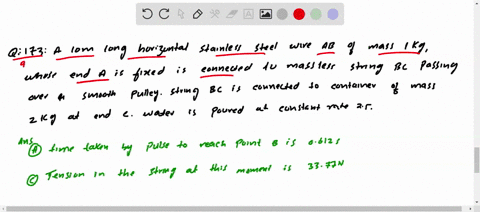 Q:173: A 10m long horizontal stainless steel wire AB of mass 1kg,
whose end A is fixed is connected to massless string BC passing
over a smooth pulley. string BC is connected to container of mass
2 kg at end C. water is poured at constant rate
Ans
(A) time taken by pulse to reach point B is 0.612s
(C) Tension in the string at this moment is 33.77N